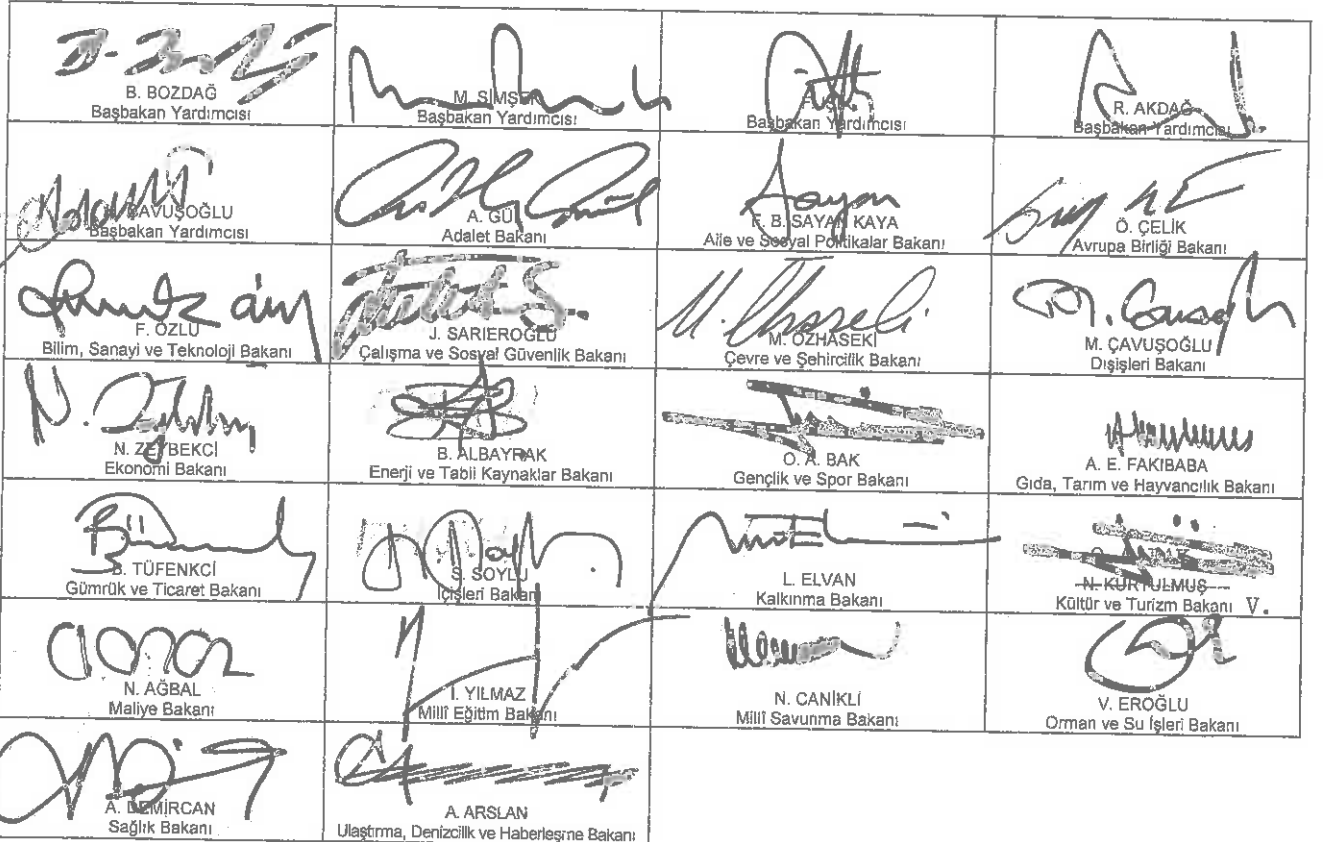 B. BOZDAĞ
Başbakan Yardımcısı
M. ŞİMŞEK
Başbakan Yardımcısı
Başbakan Yardımcısı
R. AKDAĞ
Başbakan Yardımcısı
ÇAVUŞOĞLU
Başbakan Yardımcısı
A. GÜL
Adalet Bakanı
F. B. SAYAN KAYA
Aile ve Sosyal Politikalar Bakanı
Ö. ÇELİK
Avrupa Birliği Bakanı
F. ÖZLÜ
Bilim, Sanayi ve Teknoloji Bakanı
J. SARIEROĞLU
Çalışma ve Sosyal Güvenlik Bakanı
M. ÖZHASEKİ
Çevre ve Şehircilik Bakanı
M. ÇAVUŞOĞLU
Dışişleri Bakanı
N. ZEYBEKCİ
Ekonomi Bakanı
B. ALBAYRAK
Enerji ve Tabii Kaynaklar Bakanı
O. A. BAK
Gençlik ve Spor Bakanı
A. E. FAKIBABA
Gıda, Tarım ve Hayvancılık Bakanı
B. TÜFENKCİ
Gümrük ve Ticaret Bakanı
S. SOYLU
İçişleri Bakanı
L. ELVAN
Kalkınma Bakanı
N. KURTULMUŞ
Kültür ve Turizm Bakanı V.
N. AĞBAL
Maliye Bakanı
İ. YILMAZ
Millî Eğitim Bakanı
N. CANİKLİ
Millî Savunma Bakanı
V. EROĞLU
Orman ve Su İşleri Bakanı
A. DEMİRCAN
Sağlık Bakanı
A. ARSLAN
Ulaştırma, Denizcilik ve Haberleşme Bakanı